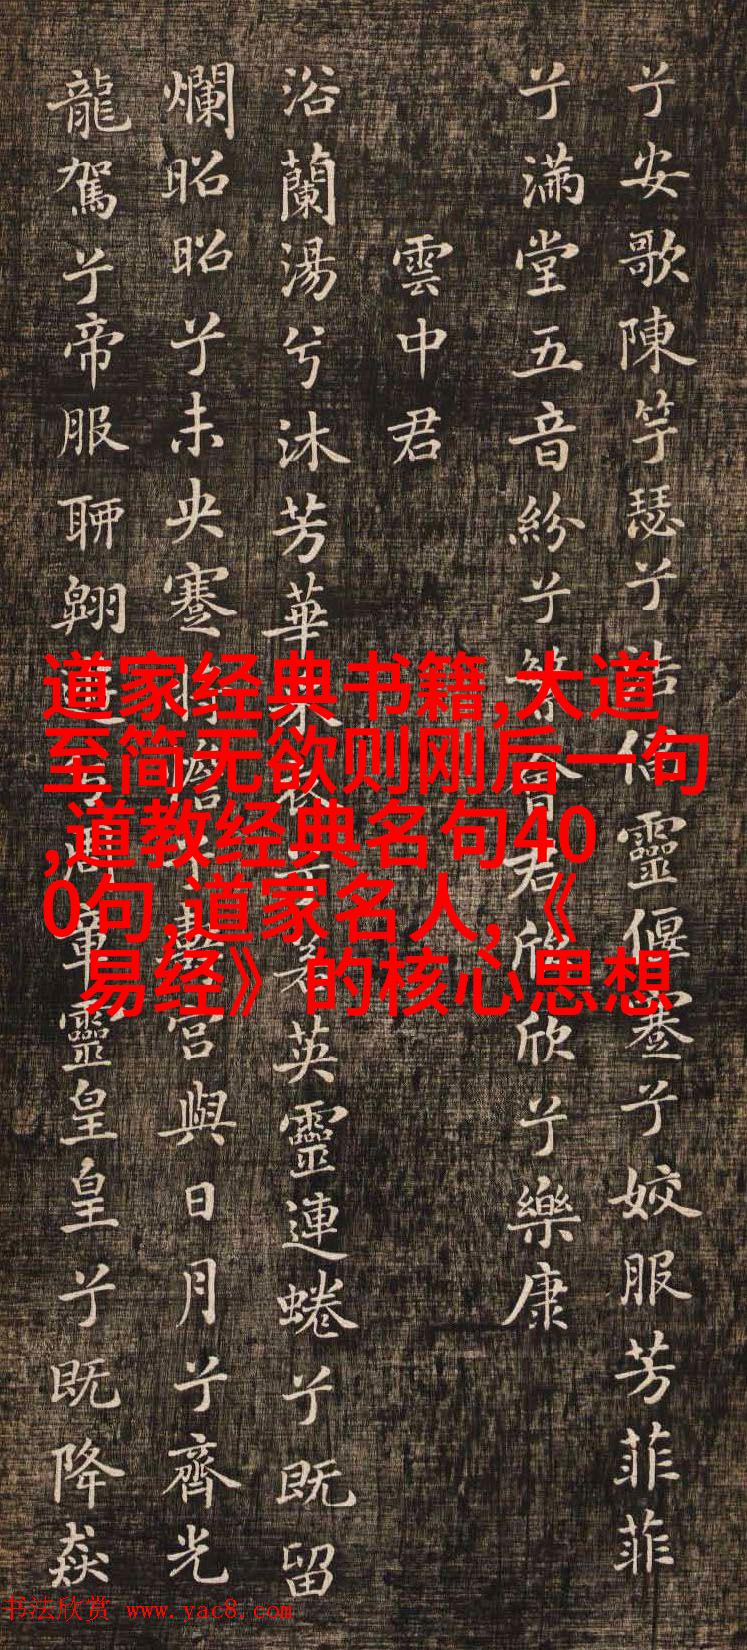 兮安歌陳竽瑟兮浩倡靈偃蹇兮姣服芳菲菲
兮滿堂五音紛兮繁會君欣欣兮樂康
雲中君
浴蘭湯兮沐芳華采衣兮若英靈連蜷兮既留
爛昭昭兮未央蹇將憺兮壽宮與日月兮齊光
龍駕兮帝服聊翱遊兮周章靈皇皇兮既降猋
道家经典书籍,大道
至简无欲则刚后一句
,道教经典名句40
0句,道家名人,《
易经》的核心思想
书法欣赏 www.yac8.com